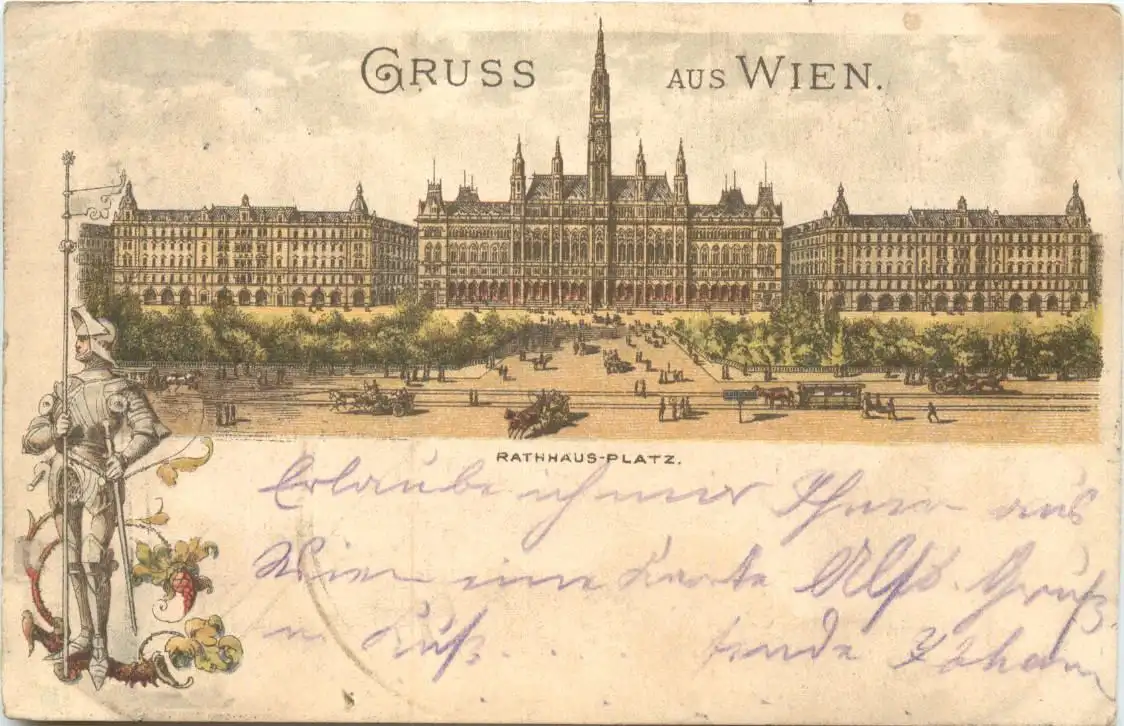 GRUSS AUS WIEN.
RATHHAUS-PLATZ.
Erlaube ich mir Ihnen aus
Wien eine Karte Als Gruß
u Kuß . . . sende Johann